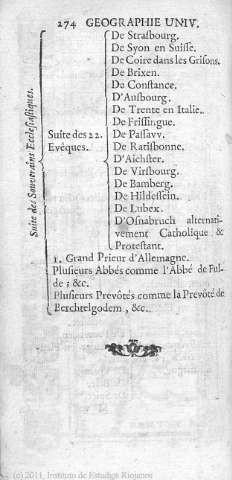 274 GEOGRAPHIE UNIV.
Suite des Souverains Ecclesiastiques.
Suite des 22.
Evéques.
De Strasbourg.
De Syon en Suisse.
De Coire dans les Grisons.
De Brixen.
De Constance.
D'Ausbourg.
De Trente en Italie.
De Frissingue.
De Passavv.
De Ratisbonne.
D'Aichster.
De Virsbourg.
De Bamberg.
De Hildessein.
De Lubex.
D'Osnabruch alternati-
vement Catholique &
Protestant.
1. Grand Prieur d'Allemagne.
Plusieurs Abbés comme l'Abbé de Ful-
de; &c.
Plusieurs Prevôtés comme la Prevôté de
Berchtelgodem, &c.
(c) 2011, Instituto de Estudios Riojanos